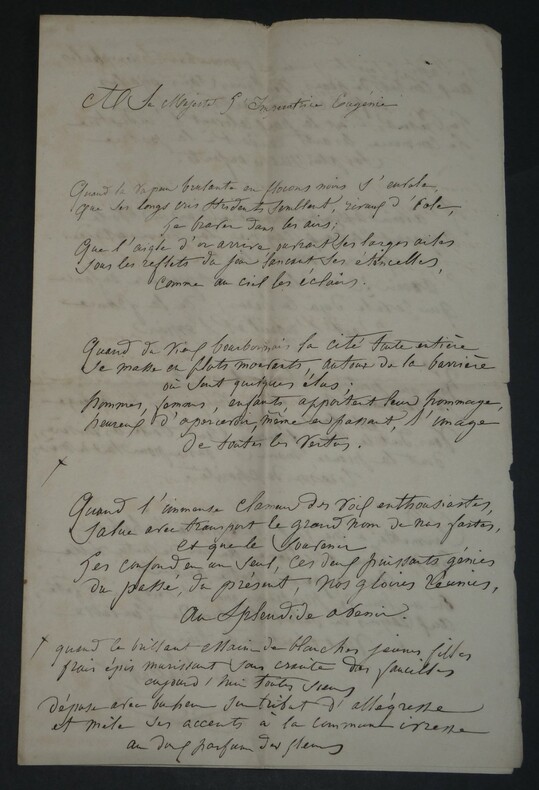 A Sa Majesté l'Impératrice Eugénie
Quand la vapeur brulante en flocons noirs s'envole,
que ses longs cris stridents semblent, rivaux d'Eole,
braver dans les airs;
Que l'aigle d'or arrive ouvrant ses larges ailes
sous les reflets du feu lancant ses étincelles,
comme au ciel les éclairs.
Quand du vieux bourbonnais la cité toute entière
se masse en flots mouvants autour de la barrière
où sont quelques élus;
hommes, femmes, enfants, apportent leur hommage,
heureux d'apercevoir, même en passant, l'image
de toutes les vertus.
x
Quand l'immense clameur des voix enthousiastes,
salue avec transport le grand nom de nos fastes,
et que le souvenir
Les confond en un seul, ces deux puissants génies
du passé, du présent, nos gloires réunies,
au splendide avenir.
x quand le brillant essaim de blanches jeunes filles
frais épis murissant sans crainte des faucilles
aujourd'hui toutes sœurs
dépose avec son tribut d'allégresse
et mêle ses accents à la commune ivresse
au doux parfum des fleurs